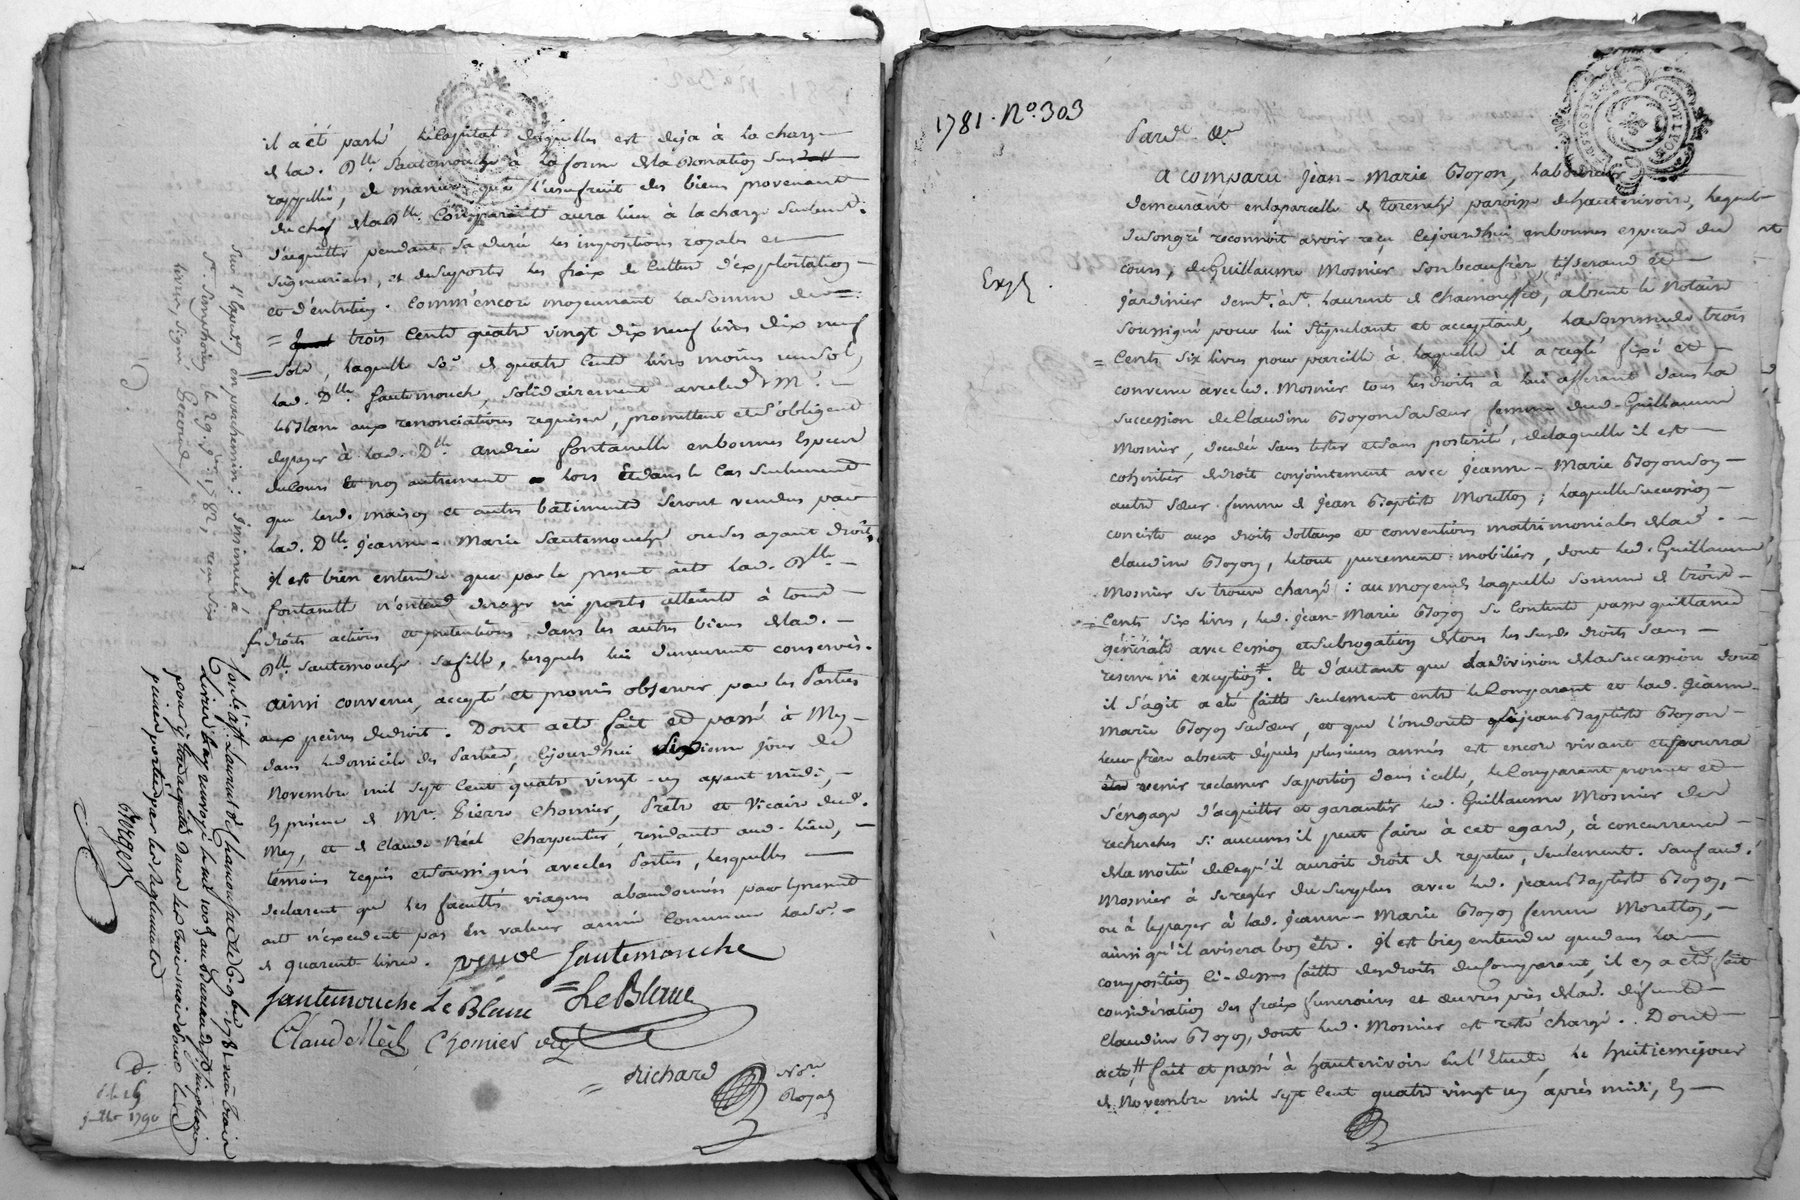 il a été parlé, le Capital desquelles est deja à la charge
de lad. Dlle. Sautemouche à la forme de la Donation sus
rappellée, de maniere que l'usufruit des biens provenant
du chef de la Dlle. Comparante aura lieu à la charge seulemt.
d'acquitter pendant sa durée les impositions royales et
seigneuriales, et de suporter les fraix de culture d'exploitation
et d'entretien. Comm'encore moyennant la somme de
trois cents quatre vingt dix neuf livres dix neuf
sols, laquelle so.e de quatre cents livres moins un sol,
lad. Dlle. Sautemouche, solidairement avec led. Sr. M.
LeBlanc aux renonciations requises, promettent et s'obligent
de payer à lad. De. andrée fontanelle en bonnes Especes
du Cours Et non autrement lors Et dans le cas seulement
que lesd. maison et autres bâtiments seront vendus par
lad. Dlle. Jeanne-Marie Sautemouche ou ses ayant droits,
il est bien entendu que par le present acte lad. Dlle.
fontanelle n'entend deroger ni porter atteinte à tous
ses droits actions et pretentions dans les autres biens de lad.
Dlle. Sautemouche sa fille, lesquels lui demeurent conservés.
ainsi convenu, accepté et promis observer par les Parties
aux peines de droit. Dont acte fait et passé à Mey
dans le domicile des Parties, cejourd'hui sixieme jour de
Novembre mil sept cent quatre vingt-un avant midi,
En presence de Mre. Pierre Chomier, Prêtre et Vicaire dud.
Mey, et de Claude Néel Charpentier, residants aud. lieu,
témoins requis et soussignés avec les Parties, lesquelles
declarent que les facultés viageres abandonnées par le present
acte n'excedent pas En valeur année commune la so.e
de quarante livres. veuve Sautemouche
Sautemouche Le Blanc LeBlanc
Claude Néel Chomier vic.
Richard No.re
Royal
Sur l'Expedon. en parchemin : Insinué à
St. Simphorien le 29. 1782, reçu six
livres, signé,
1790
1781. No. 303
Pardt. &a
Exp.
A comparu Jean-Marie Boyon, laboureur
demeurant en la parcelle de torenche paroisse d'hauterivoire, lequel
de son gré reconnoit avoir reçu cejourd'hui en bonnes especes du
cours, de Guillaume Mosnier son beaufrère tisserand et
jardinier demt. à St. Laurent de Chamousset, absent le Notaire
soussigné pour lui stipulant et acceptant, la somme de trois
cents six livres pour pareille à laquelle il a reglé fixé et
convenu avec led. Mosnier tous les droits à lui afferant dans la
succession de Claudine Boyon sa sœur femme dud. Guillaume
Mosnier, decedée sans tester et sans posterité, de laquelle il est
cohéritier de droit conjointement avec Jeanne-Marie Boyon son
autre sœur femme de Jean Baptiste Moretton ; laquelle succession
consiste aux droits dottaux et conventions matrimoniales de lad.
Claudine Boyon, le tout purement mobilier, dont led. Guillaume
Mosnier se trouve chargé : au moyen de laquelle somme de trois
cents six livres, led. Jean-Marie Boyon se contente passe quittance
générale avec cession et subrogation de tous les susds. droits sans
reserve ni exception. Et d'autant que la division de la succession dont
il s'agit a été faitte seulement entre le Comparant et lad. Jeanne
Marie Boyon sa sœur, et que l'on doute que jean Baptiste Boyon
leur frère absent depuis plusieurs années est encore vivant et pourra
venir reclamer sa portion dans icelle, le Comparant promet et
s'engage d'acquitter et garantir led. Guillaume Mosnier des
recherches si aucunes il peut faire à cet egard, à concurrence
de la moitié de ce qu'il auroit droit de repeter, seulement. sauf aud.
Mosnier à se regler du surplus avec led. jean Baptiste Boyon,
ou à le payer à lad. Jeanne-Marie Boyon femme Moretton,
ainsi qu'il avisera bon être. Il est bien entendu que dans la
composition ci-dessus faitte des droits du Comparant, il en a été fait
considération des fraix funeraires et œuvres pies de lad. defunte
Claudine Boyon, dont led. Mosnier est resté chargé. Dont
acte, fait et passé à hauterivoire En l'Etude, le huitieme jour
de Novembre mil sept cent quatre vingt un après midi, En